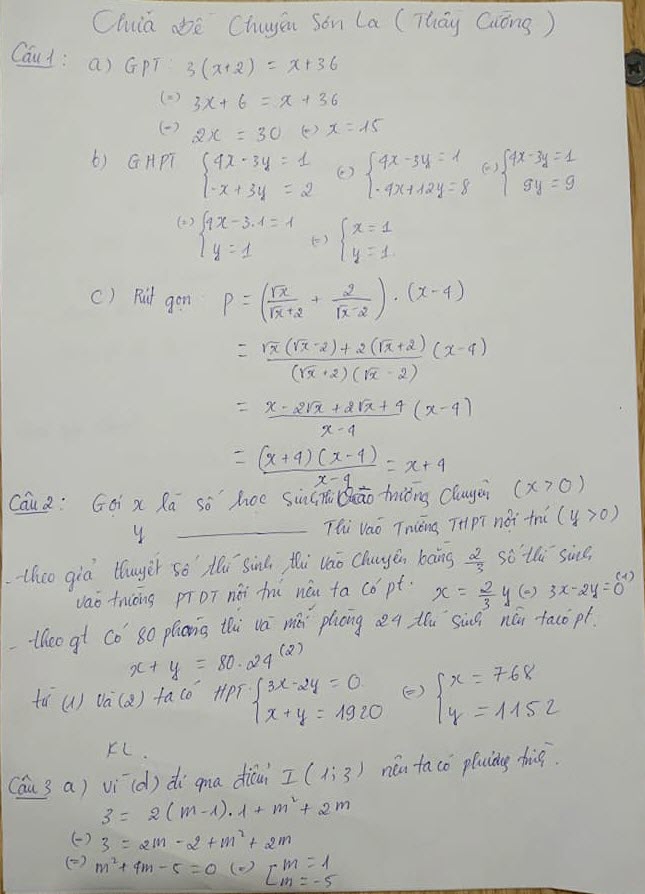 Chữa Đề Chuyên Sơn La (Thầy Cường)
Câu 1: a) GPT: 3(x+2) = x+36
(=) 3x+6 = x+36
(=) 2x = 30 (=) x = 15
b) GHPT { 4x-3y = 1 ; -x+3y = 2 (=) { 4x-3y = 1 ; -4x+12y = 8 (=) { 4x-3y = 1 ; 9y = 9
(=) { 4x-3.1 = 1 ; y = 1 (=) { x = 1 ; y = 1.
c) Rút gọn P = (√x/(√x+2) + 2/(√x-2)) . (x-4)
= (√x(√x-2)+2(√x+2))/((√x+2)(√x-2)) (x-4)
= (x-2√x+2√x+4)/(x-4) (x-4)
= ((x+4)(x-4))/(x-4) = x+4
Câu 2: Gọi x là số học sinh thi vào trường chuyên (x>0)
y ———— Thi vào Trường THPT nội trú (y>0)
- theo giả thuyết số thí sinh thi vào chuyên bằng 2/3 số thí sinh
vào trường PTDT nội trú nên ta có pt. x = 2/3 y (=) 3x-2y=0 (1)
- theo gt có 80 phòng thi và mỗi phòng 24 thí sinh nên ta có pt.
x+y = 80.24 (2)
từ (1) và (2) ta có HPT. { 3x-2y = 0. ; x+y = 1920 (=) { x = 768 ; y = 1152
KL.
Câu 3 a) vì (d) đi qua điểm I (1;3) nên ta có phương trình.
3 = 2(m-1).1+m²+2m
(=) 3 = 2m-2+m²+2m
(=) m²+4m-5=0 (=) [ m = 1 ; m = -5